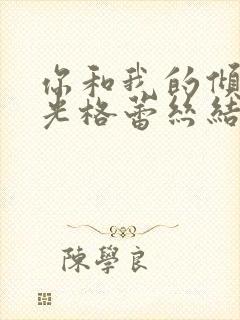 你和我的傾
光格蕾絲結
陳學良